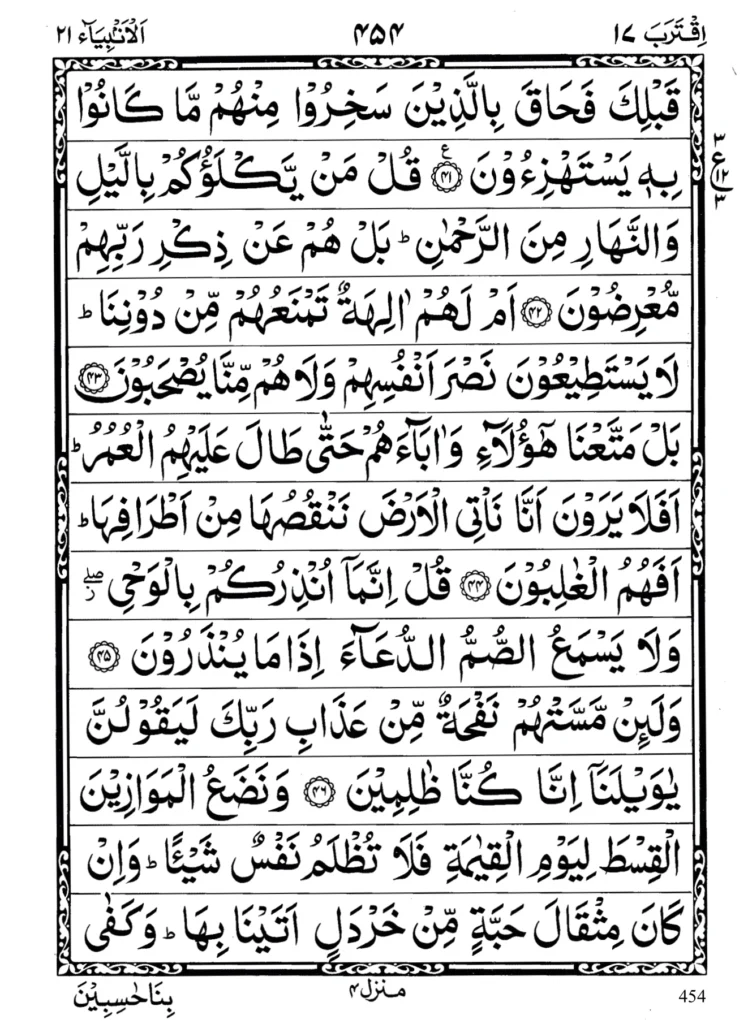 اِقْتَرَبَ ١٧ ۴۵۴ اَلْاَنْۢبِيَآء ٢١
قَبْلِكَ فَحَاقَ بِالَّذِيْنَ سَخِرُوْا مِنْهُمْ مَّا كَانُوْا
بِهٖ يَسْتَهْزِءُوْنَ ﴿۴۱﴾ ع قُلْ مَنْ يَّكْلَؤُكُمْ بِالَّيْلِ
٣ ع ١٢ ٣
وَالنَّهَارِ مِنَ الرَّحْمٰنِ ؕ بَلْ هُمْ عَنْ ذِكْرِ رَبِّهِمْ
مُّعْرِضُوْنَ ﴿۴۲﴾ اَمْ لَهُمْ اٰلِهَةٌ تَمْنَعُهُمْ مِّنْ دُوْنِنَا ؕ
لَا يَسْتَطِيْعُوْنَ نَصْرَ اَنْفُسِهِمْ وَلَا هُمْ مِّنَّا يُصْحَبُوْنَ ﴿۴۳﴾
بَلْ مَتَّعْنَا هٰٓؤُلَآءِ وَاٰبَآءَهُمْ حَتّٰى طَالَ عَلَيْهِمُ الْعُمُرُ ؕ
اَفَلَا يَرَوْنَ اَنَّا نَاْتِى الْاَرْضَ نَنْقُصُهَا مِنْ اَطْرَافِهَا ؕ
اَفَهُمُ الْغٰلِبُوْنَ ﴿۴۴﴾ قُلْ اِنَّمَآ اُنْذِرُكُمْ بِالْوَحْىِ ۖ ز
وَلَا يَسْمَعُ الصُّمُّ الدُّعَآءَ اِذَا مَا يُنْذَرُوْنَ ﴿۴۵﴾
وَلَئِنْ مَّسَّتْهُمْ نَفْحَةٌ مِّنْ عَذَابِ رَبِّكَ لَيَقُوْلُنَّ
يٰوَيْلَنَآ اِنَّا كُنَّا ظٰلِمِيْنَ ﴿۴۶﴾ وَنَضَعُ الْمَوَازِيْنَ
الْقِسْطَ لِيَوْمِ الْقِيٰمَةِ فَلَا تُظْلَمُ نَفْسٌ شَيْئًا ؕ وَاِنْ
كَانَ مِثْقَالَ حَبَّةٍ مِّنْ خَرْدَلٍ اَتَيْنَا بِهَا ؕ وَكَفٰى
454 منزل ۴ بِنَا حٰسِبِيْنَ